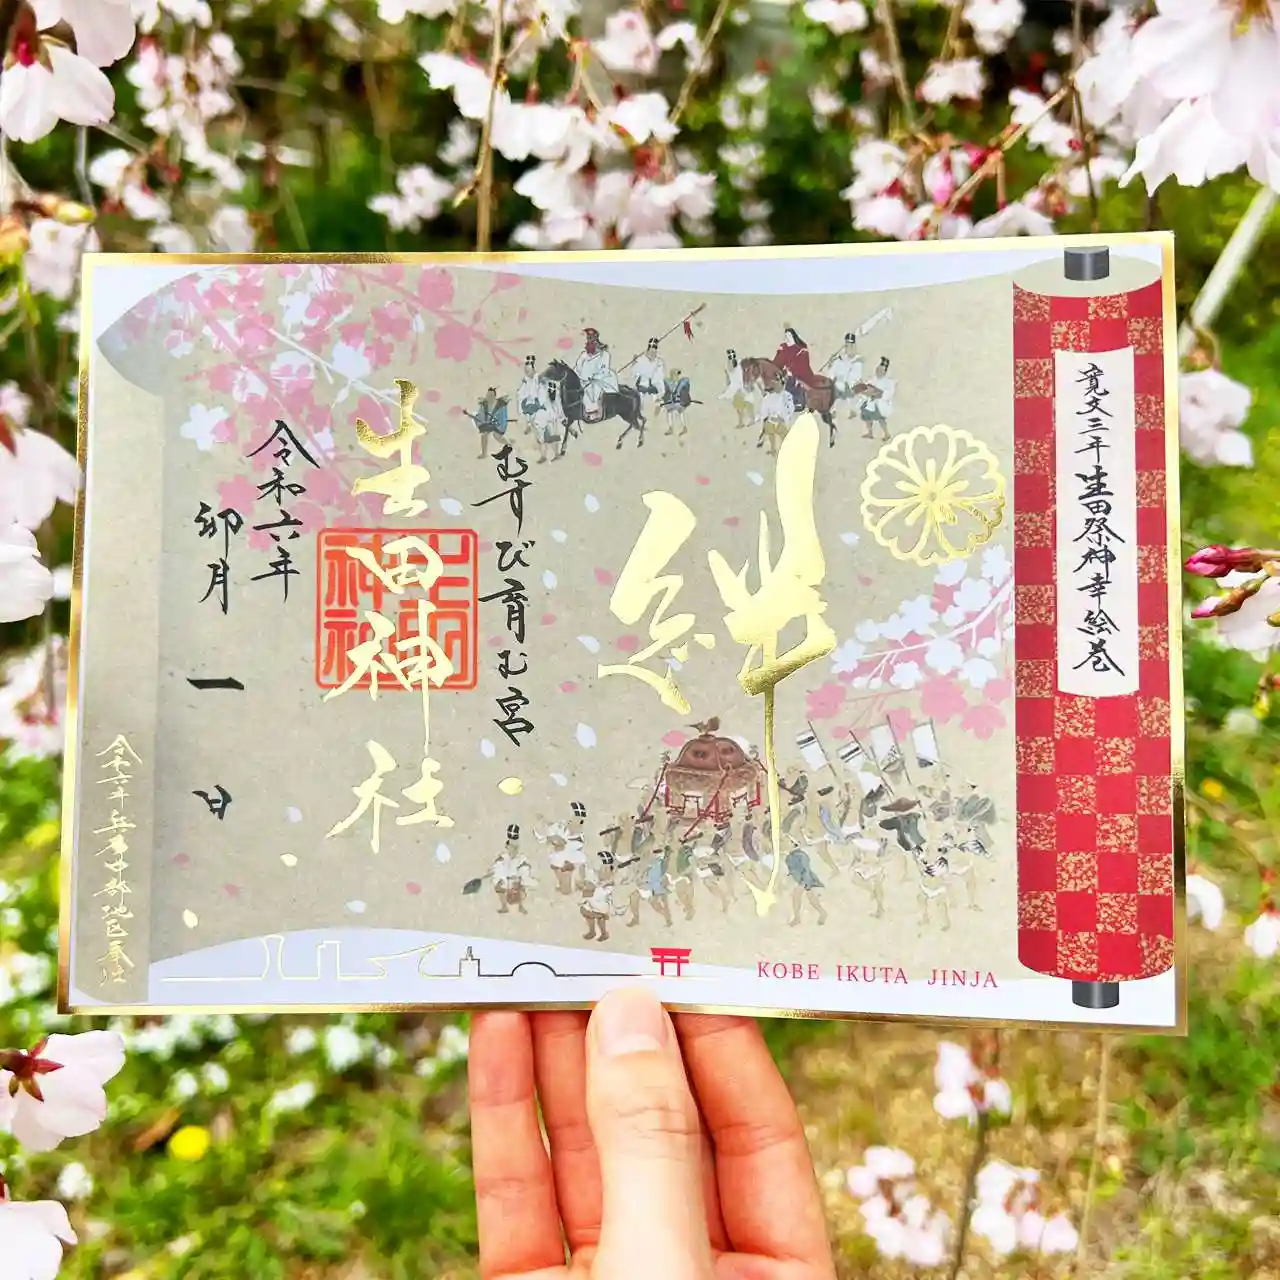 寛文三年生田祭神幸絵巻
絆
むすび育む宮
生田神社
生田神社
令和六年
卯月一日
令和六年兵庫中部地区奉仕
KOBE IKUTA JINJA